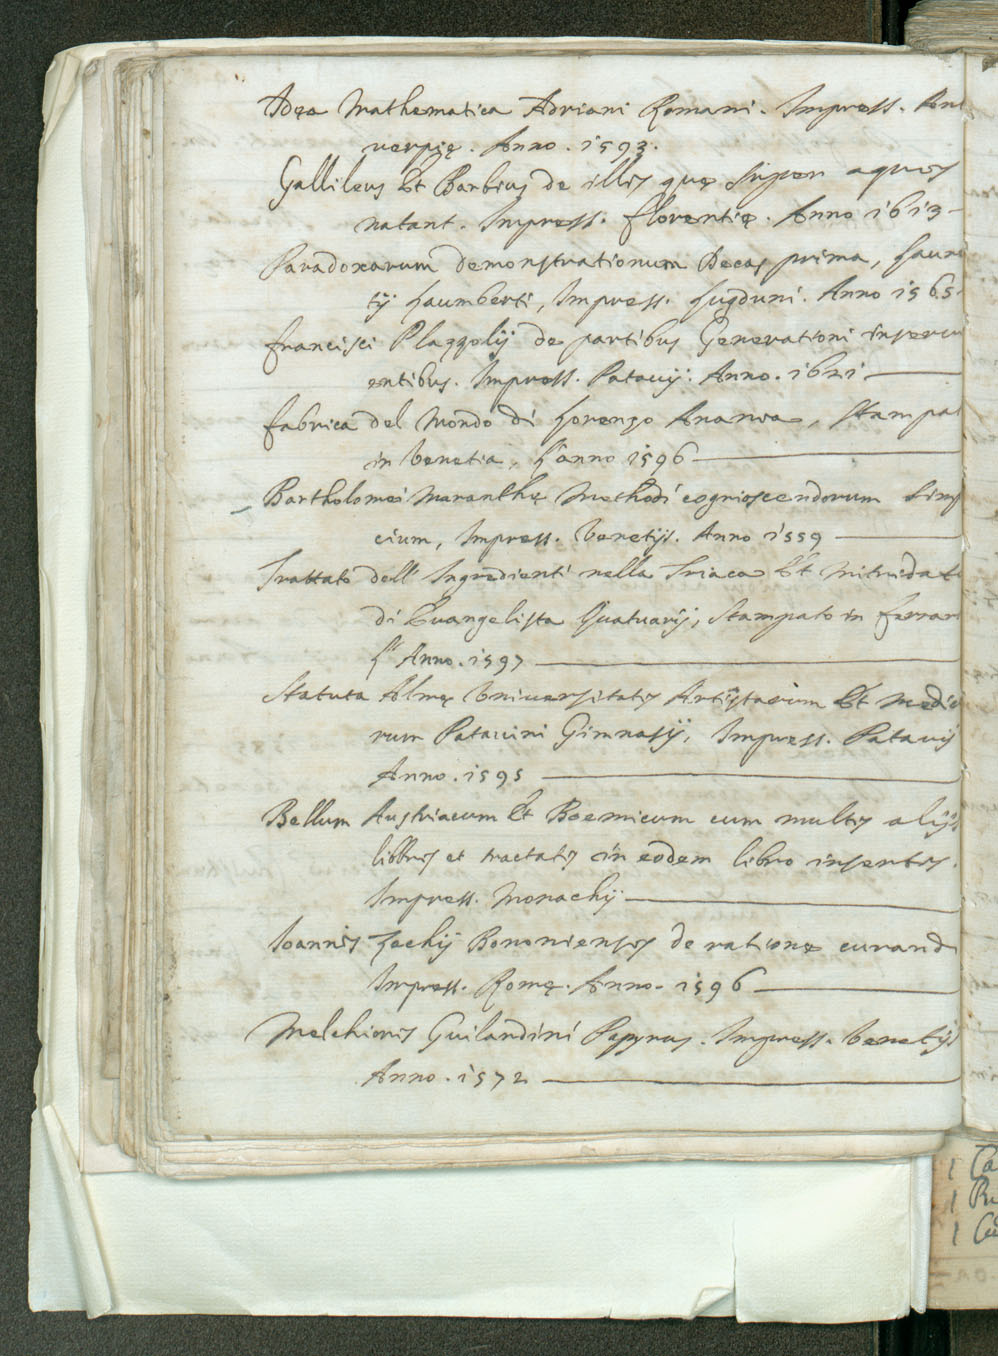 Idęa Mathematica Adriani Romani. Impress. Ant
verpię. Anno. 1593.
Gallileus Et Barbius de illis quę super aquis
natant. Impress. florentię. Anno 1613
Paradoxarum demonstrationum Decas prima, Laure
tij Laumberti, Impress. Lugduni. Anno 1565.
francisci Plazzolij de partibus Generationi inservi
entibus. Impress. Patavij. Anno. 1621
fabrica del Mondo di Lorenzo Anania, Stampat
in Venetia, L'anno 1596
Bartholomei Maranthę Methodi cognioscendorum Simp
cium, Impress. Venetijs. Anno 1559
Trattato dell' Ingredienti nella Triaca Et Mitridat
di Evangelista Quatuarij, Stampato in ferrar
L' Anno. 1597
Statuta Almę Vniversitatis Artistarum Et Medic
rum Patavini Gimnasij, Impress. Patavij
Anno. 1595
Bellum Austriacum Et Boemicum cum multis alijs
libbris et tractatis in eodem libro insertis.
Impress. Monachij
Ioannis Zechij Bononiensis de rationę curandi
Impress. Romę. Anno. 1596
Melchioris Guilandini Papyrus. Impress. Venetijs
Anno. 1572
1 Ca
1
1